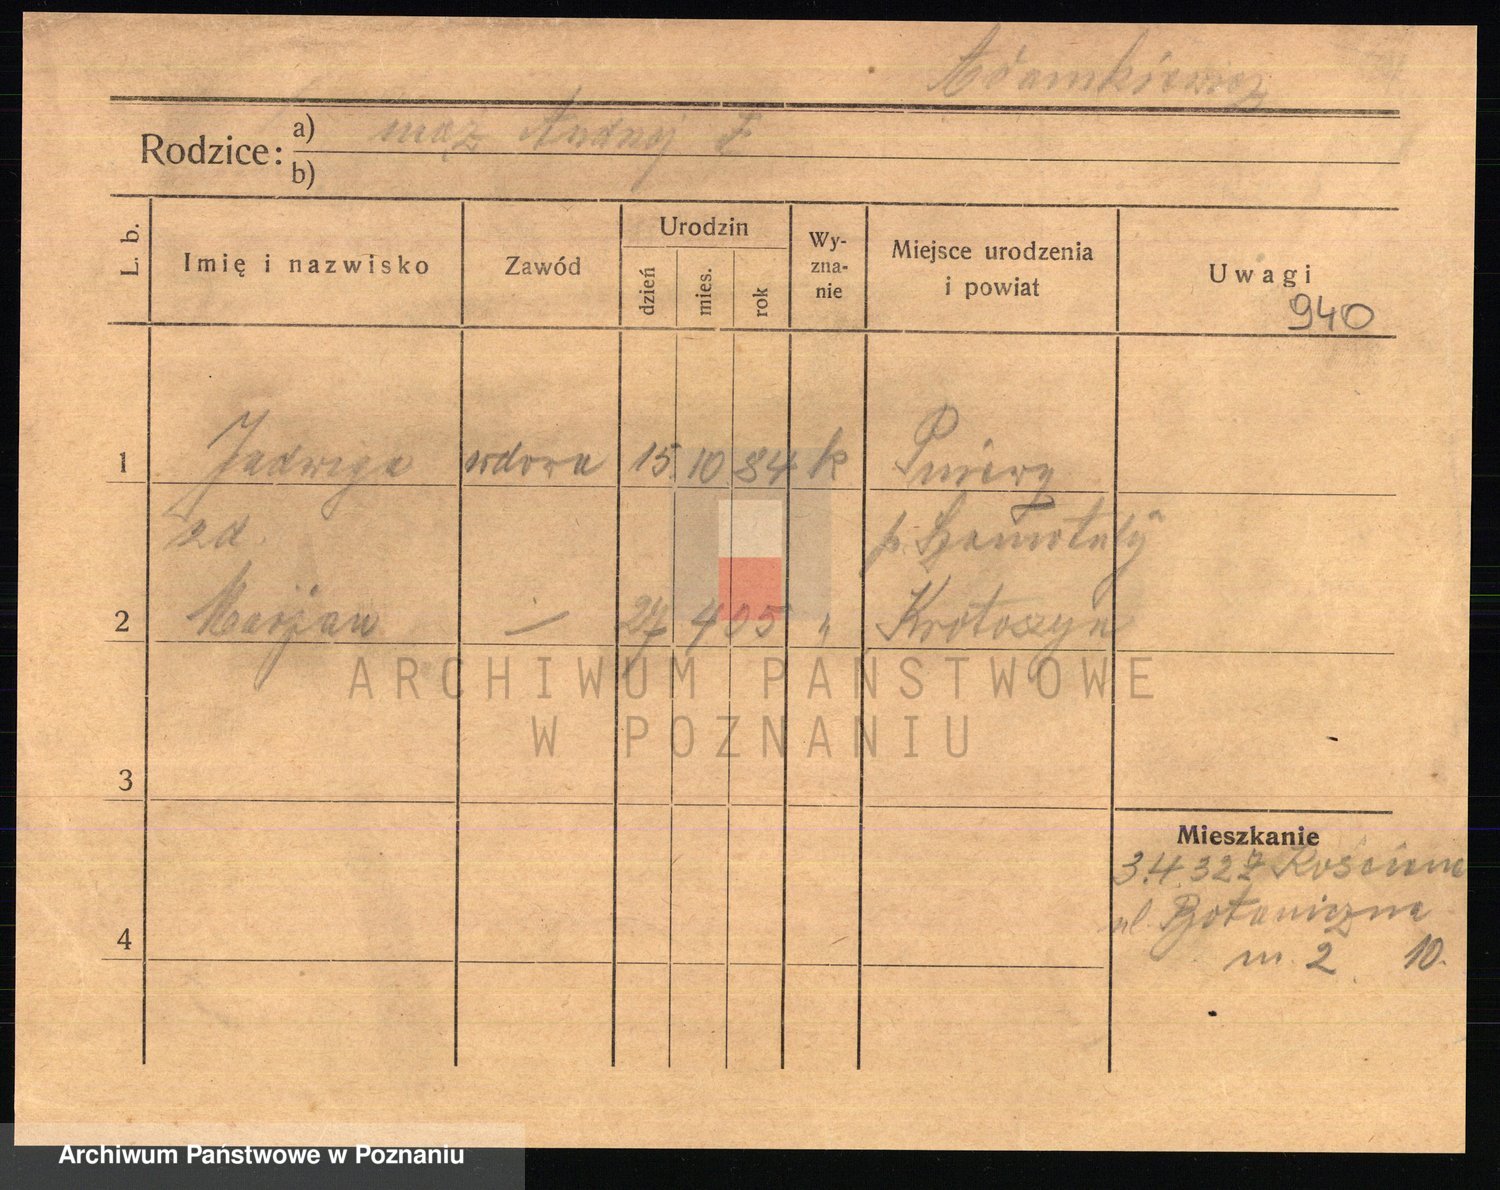 Adamkiewicz
Rodzice: a) mąż Andrzej F
b)
L. b.
Imię i nazwisko
Zawód
Urodzin
dzień
mies.
rok
Wy-
zna-
nie
Miejsce urodzenia
i powiat
Uwagi
940
1 Jadwiga wdowa 15. 10 84 k Pniewy
zd. p. Szamotuły
2 Marjan — 27 4 05 " Krotoszyn
3
4
Mieszkanie
3.4.32 z Kościana
ul. Botaniczna
m. 2 10.
ARCHIWUM PAŃSTWOWE
W POZNANIU
Archiwum Państwowe w Poznaniu